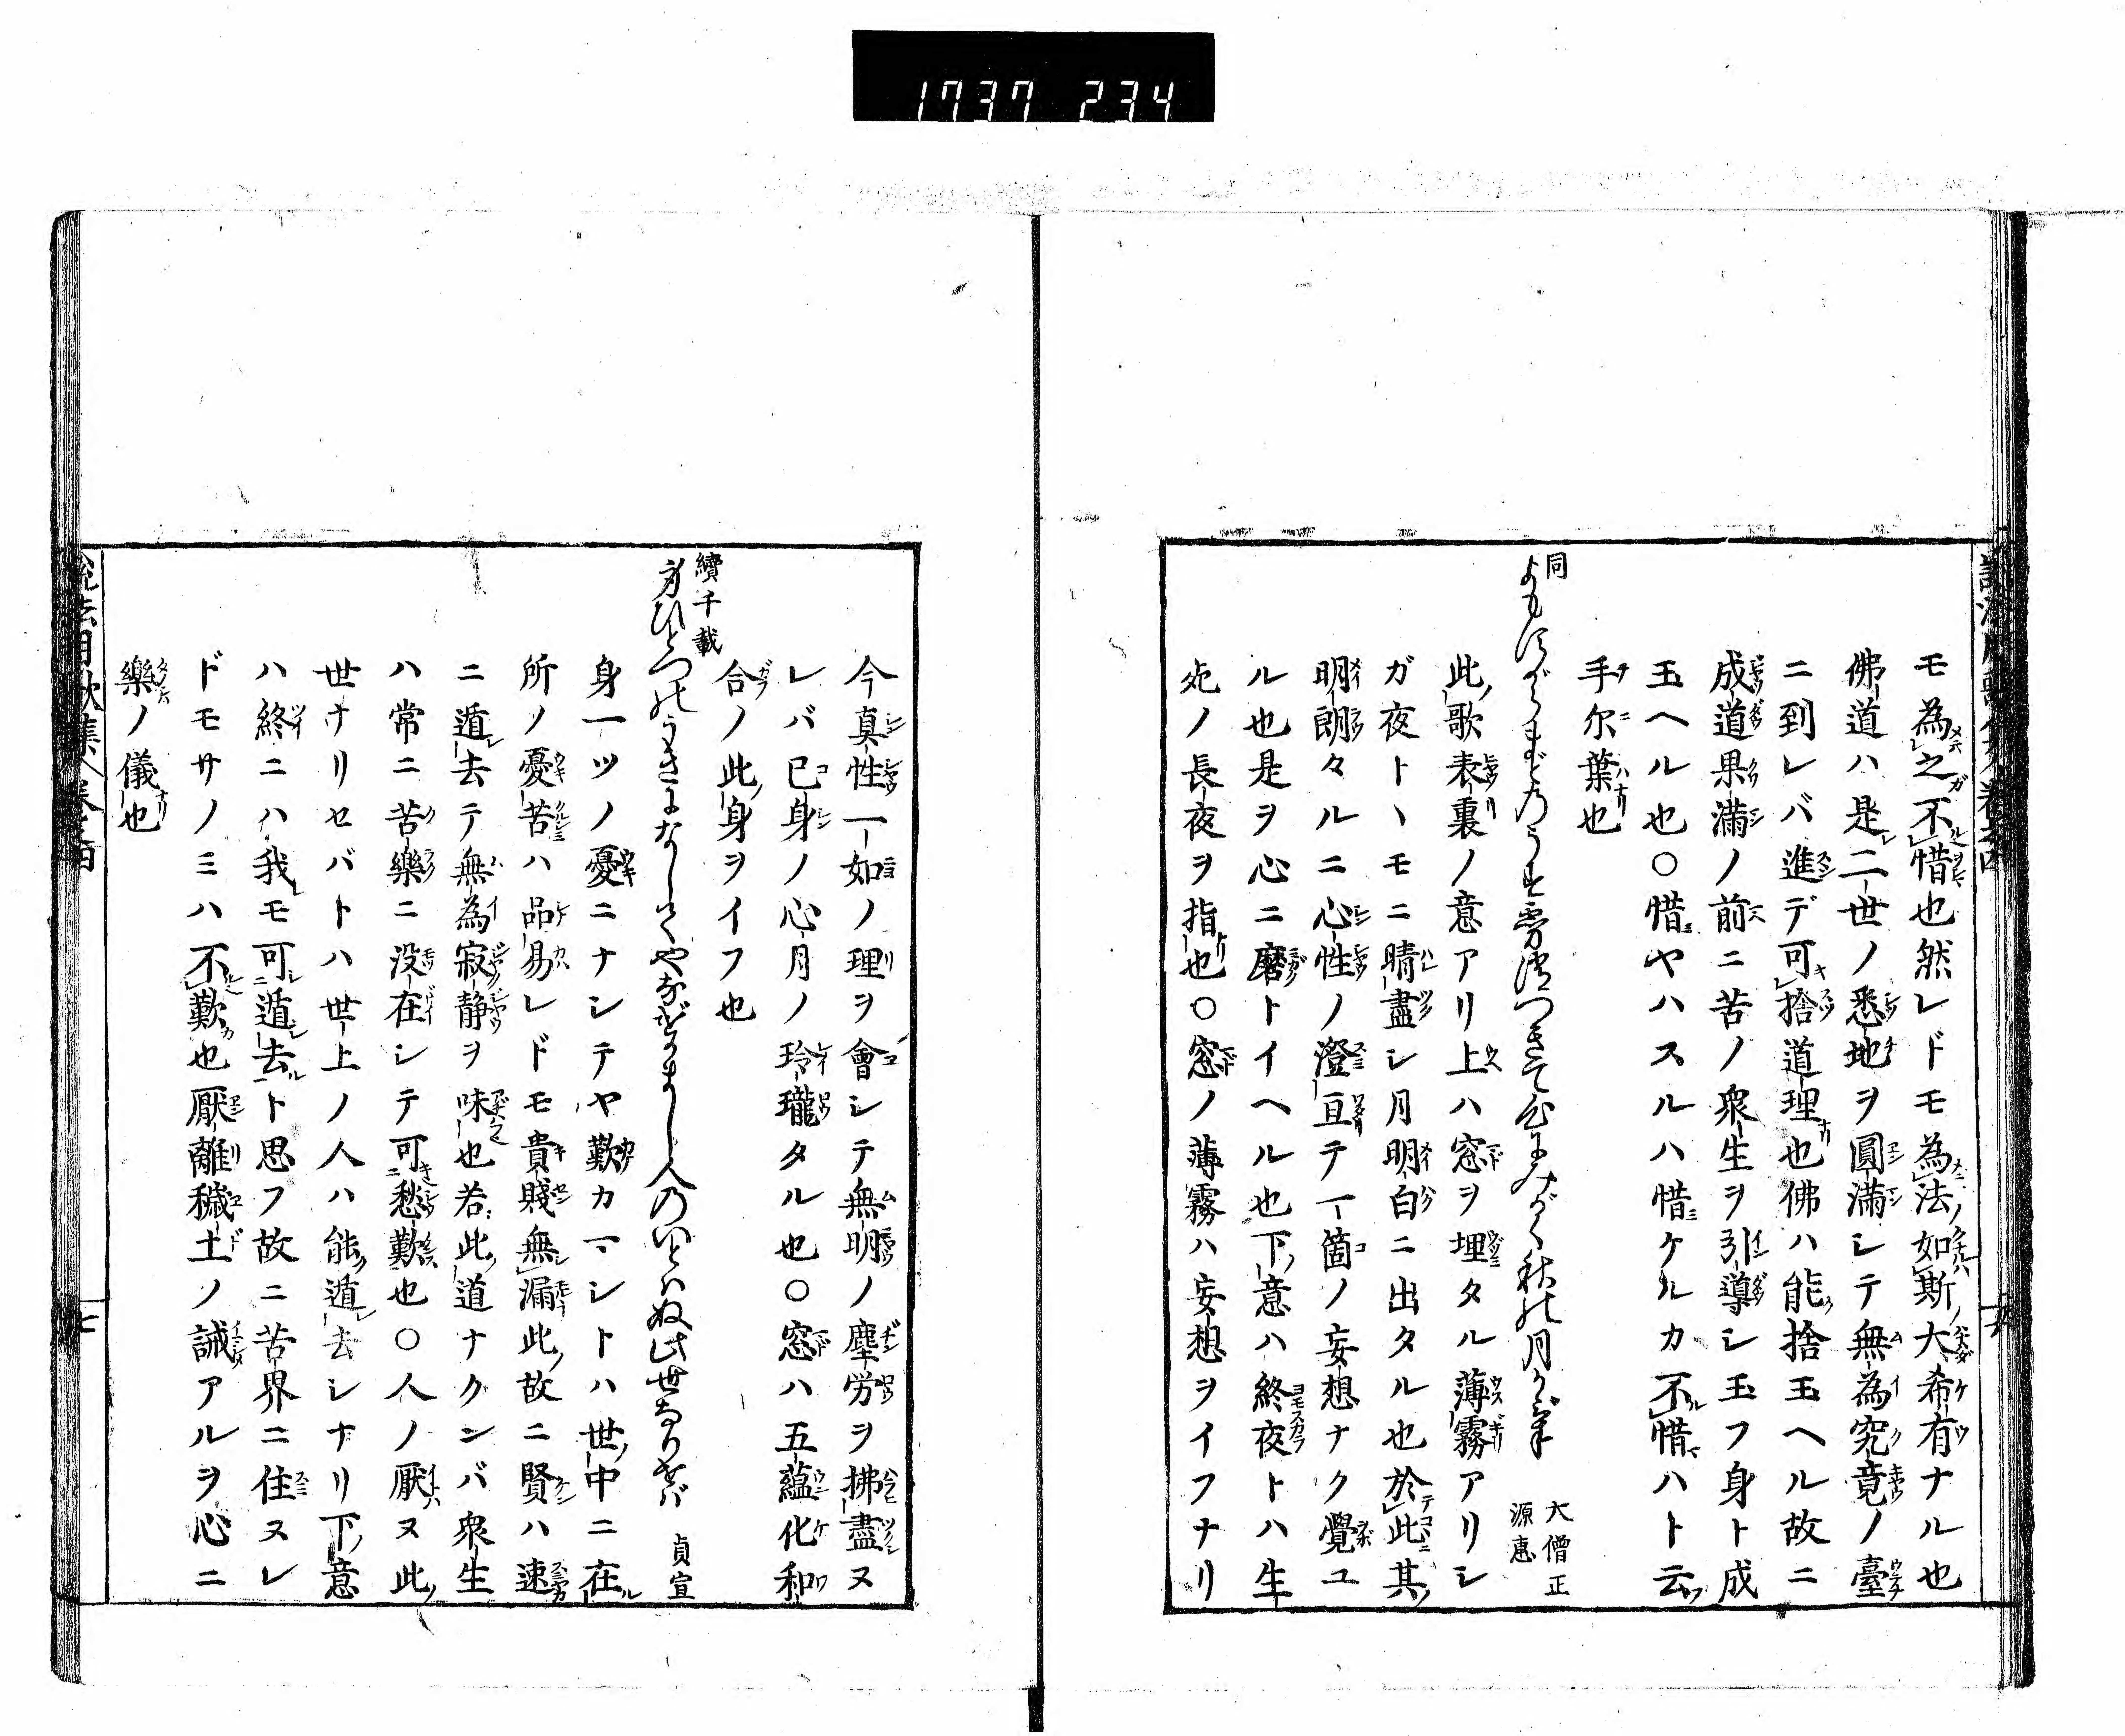 1737 234
モ為之不惜也然レドモ為法如斯大希有ナル也
佛道ハ是二世ノ悉地ヲ圓滿シテ無為究竟ノ臺
ニ到レバ進デ可捨道理也佛ハ能捨玉ヘル故ニ
成道果滿ノ前ニ苦ノ衆生ヲ引導シ玉フ身ト成
玉ヘル也〇惜ヤハスルハ惜ケルカ不惜ハト云
手尓葉也
同
大僧正
源恵
此歌表裏ノ意アリ上ハ窓ヲ埋タル薄霧アリシ
ガ夜トヽモニ晴盡シ月明白ニ出タル也於此其
明朗々ルニ心性ノ澄亘テ一箇ノ妄想ナク覺ユ
ル也是ヲ心ニ磨トイヘル也下意ハ終夜トハ生
死ノ長夜ヲ指也〇窓ノ薄霧ハ妄想ヲイフナリ
今真性一如ノ理ヲ會シテ無明ノ塵労ヲ拂盡ヌ
レバ已身ノ心月ノ玲瓏タル也〇窓ハ五蘊化和
合ノ此身ヲイフ也
續千載
身ひとつのうきになしてやなげかまし人のいとはぬ此世なりせば
貞宣
身一ツノ憂ニナシテヤ歎カマシトハ世中ニ在
所ノ憂苦ハ品易レドモ貴賤無漏此故ニ賢ハ速
ニ遁去テ無為寂静ヲ味也若此道ナクンバ衆生
ハ常ニ苦樂ニ没在シテ可愁歎也〇人ノ厭ヌ此
世ナリセバトハ世上ノ人ハ能遁去シナリ下意
ハ終ニハ我モ可遁去ト思フ故ニ苦界ニ住ヌレ
ドモサノミハ不歎也厭離穢土ノ誡アルヲ心ニ
樂ノ儀也